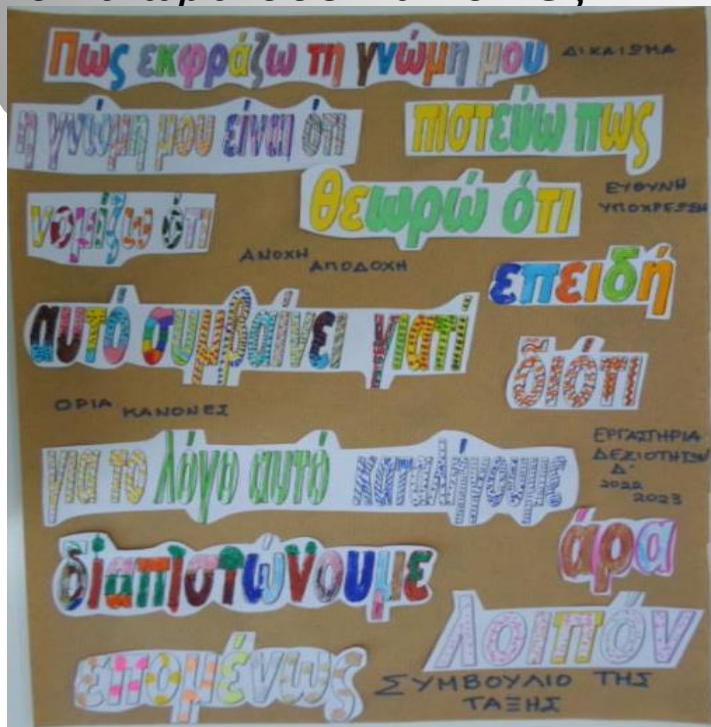 Πώς εκφράζω τη γνώμη μου
ΔΙΚΑΙΩΜΑ
η γνώμη μου είναι ότι
πιστεύω πως
νομίζω ότι
θεωρώ ότι
ΕΥΘΥΝΗ
ΥΠΟΧΡΕΩΣΗ
ΑΝΟΧΗ
ΑΠΟΔΟΧΗ
επειδή
αυτό συμβαίνει γιατί
διότι
ΟΡΙΑ ΚΑΝΟΝΕΣ
για το λόγο αυτό
ΕΡΓΑΣΤΗΡΙΑ
ΔΕΞΙΟΤΗΤΩΝ
Δ'
2022
2023
άρα
διαπιστώνουμε
λοιπόν
επομένως
ΣΥΜΒΟΥΛΙΟ ΤΗΣ
ΤΑΞΗΣ